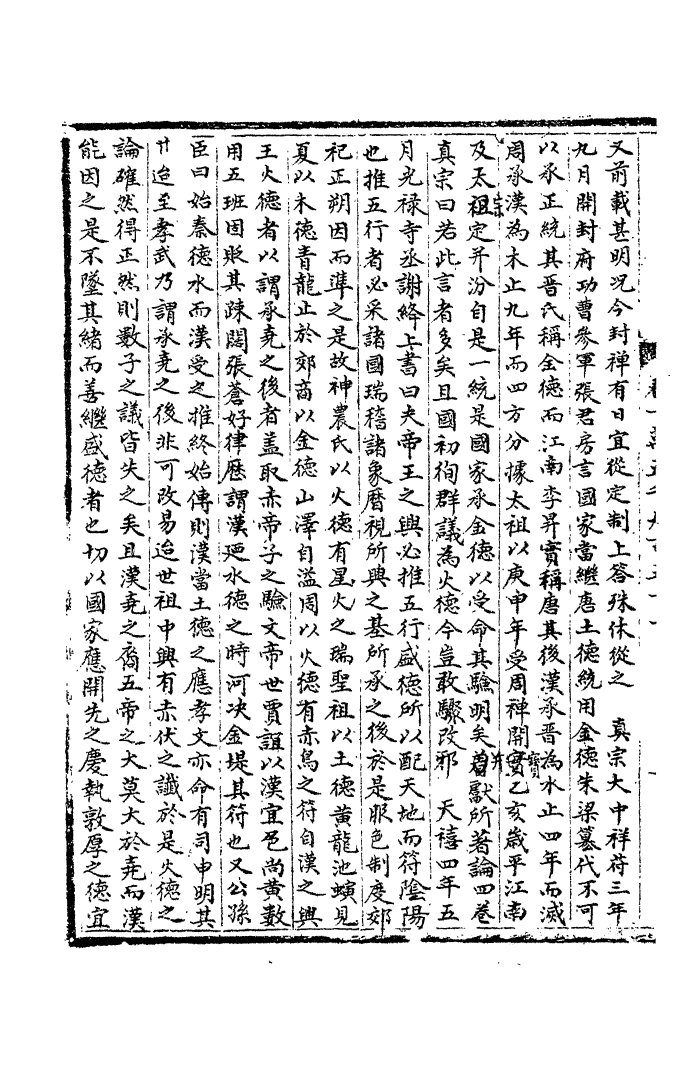 又前載甚明况今封禪有日宜從定制上答殊休從之　真宗大中祥符三年
九月開封府功曹參軍張君房言國家當繼唐土德統用金德朱梁篡代不可
以承正統其晋氏稱金德而江南李昇實稱唐其後漢承晋為水止四年而滅
周承漢為木止九年而四方分據太祖以庚申年受周禅開寶乙亥歲平江南
及太祖定并汾自是一統是國家承金德以受命其驗明矣着獻所著論四卷
真宗曰若此言者多矣且國初徇群議為火德今豈敢驟改邪　天禧四年五
月光禄寺丞謝絳上書曰夫帝王之興必推五行盛德所以配天地而符陰陽
也推五行者必采諸國瑞稽諸象曆視所興之基所承之後於是服色制度郊
祀正朔因而準之是故神農氏以火德有星火之瑞聖祖以土德黄龍池螾見
夏以木德青龍止於郊商以金德山澤自溢周以火德有赤鳥之符自漢之興
王火德者以謂承堯之後者盖取赤帝子之驗文帝世賈誼以漢宜色尚黄數
用五班固貶其疎闊張蒼好律歷謂漢廼水德之時河决金堤其符也又公孫
臣曰始秦德水而漢受之推終始傳則漢當土德之應孝文亦命有司申明其
廿迨至孝武乃謂承堯之後非可改易迨世祖中興有赤伏之讖於是火德之
論確然得正然則數子之議皆失之矣且漢堯之裔五帝之大莫大於堯而漢
能因之是不墜其緒而善繼盛德者也切以國家應開先之慶執敦厚之德宜